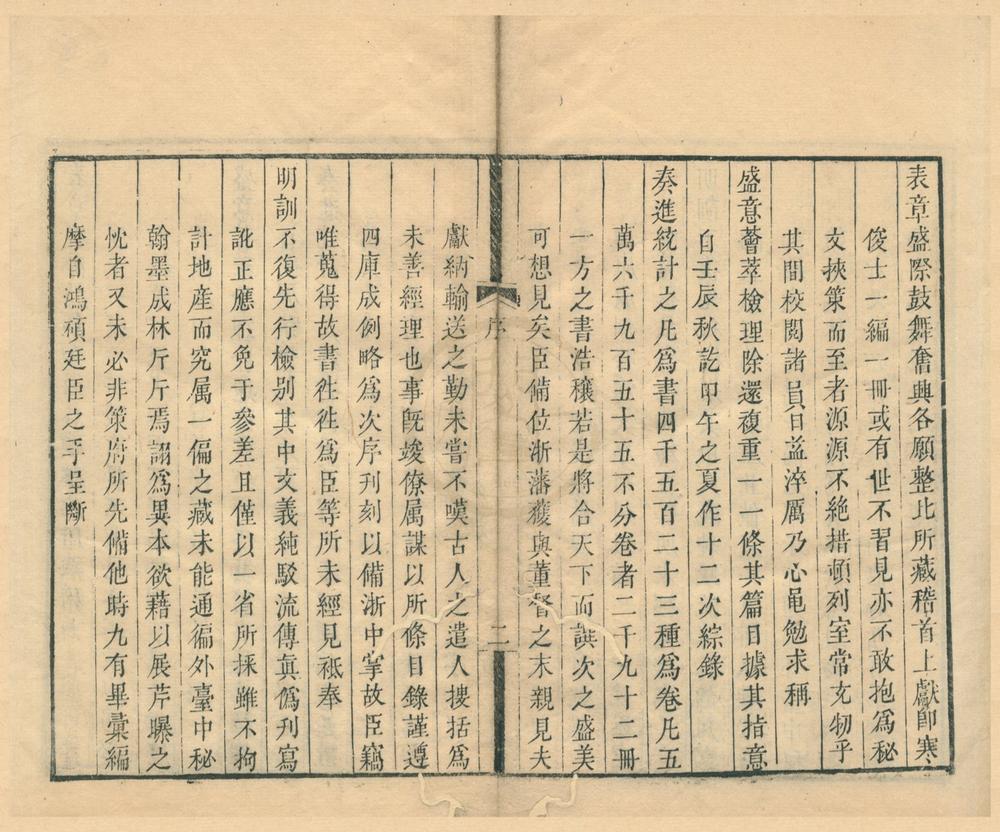 表章盛際鼓舞奮興各願整比所藏稽首上獻卽寒
俊士一編一冊或有世不習見亦不敢抱爲秘
文挾策而至者源源不絕措頓列室常充牣乎
其間校閱諸員日益淬厲乃心黽勉求稱
盛意薈萃檢理除還複重一一條其篇目據其指意
自壬辰秋訖甲午之夏作十二次綜錄
奏進統計之凡爲書四千五百二十三種爲卷凡五
萬六千九百五十五不分卷者二千九十二冊
一方之書浩穰若是將合天下而譔次之盛美
可想見矣臣備位浙藩獲與董督之末親見夫
序
二
獻納輸送之勤未嘗不嘆古人之遣人搜括爲
未善經理也事旣竣僚屬謀以所條目錄謹遵
四庫成例略爲次序刊刻以備浙中掌故臣竊
唯蒐得故書徃徃爲臣等所未經見祗奉
明訓不復先行檢别其中文義純駁流傳眞僞刊寫
訛正應不免于參差且僅以一省所採雖不拘
計地産而究属一偏之藏未能通徧外臺中秘
翰墨成林斤斤焉詡爲異本欲藉以展芹曝之
忱者又未必非策府所先備他時九有畢彙編
摩自鴻碩廷臣之手呈斷